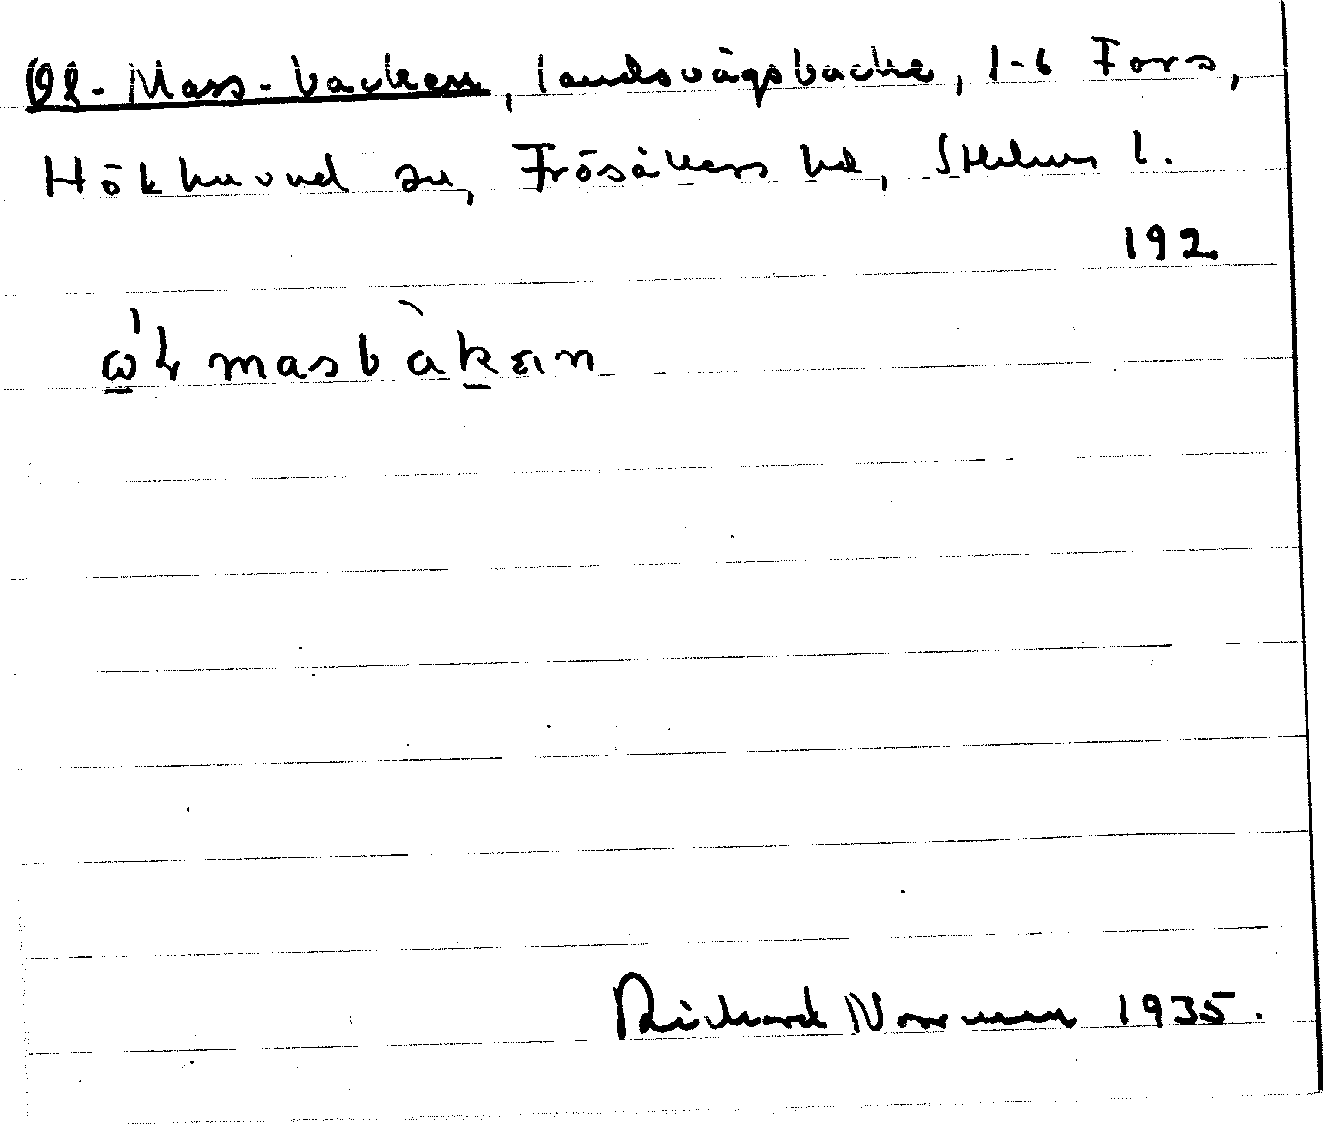 Ol-Mass-backen, landsvägsbacke, 1-6 Fors,
Hökhuvud sn, Frösåkers hd, Sthlms l.
192
masbàkan
Richard Norrman 1935.